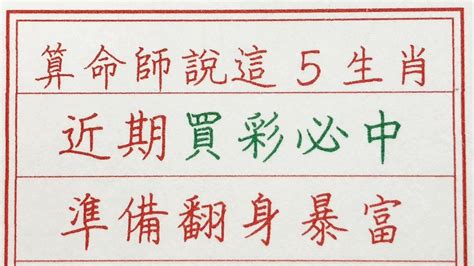 算命師說這5生肖
近期買彩必中
準備翻身暴富